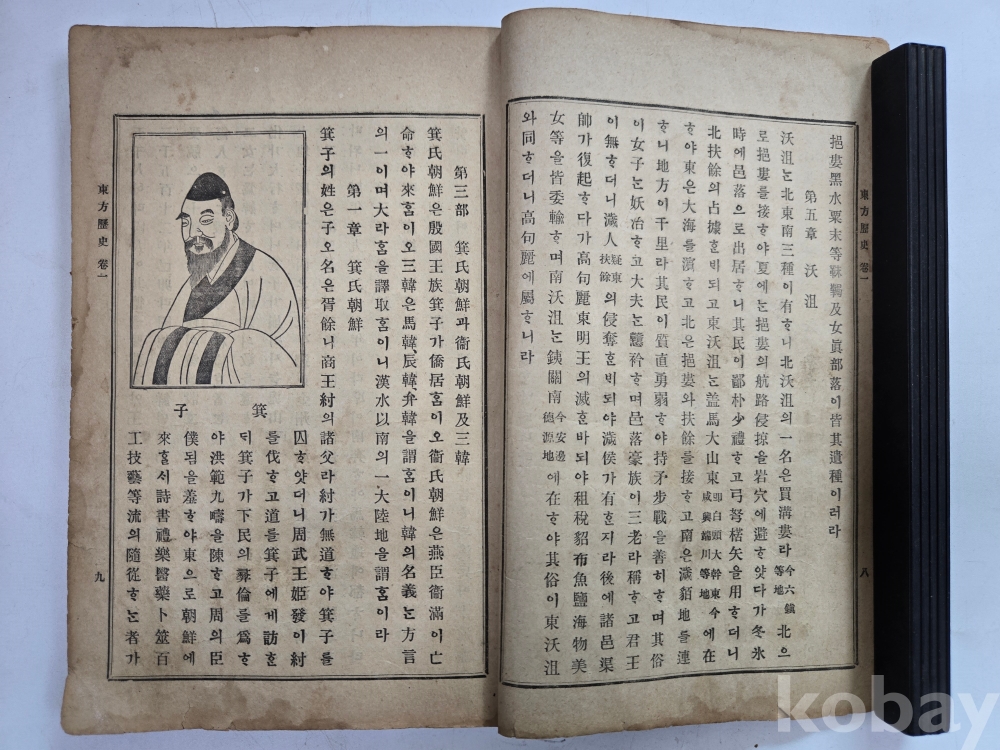 東方歷史 卷一
挹婁黑水粟末等靺鞨及女眞部落이皆其遺種이러라
第五章 沃沮
沃沮ᄂᆞᆫ北東南三種이有ᄒᆞ니北沃沮의一名은買溝婁라今六鎭等地北으
로挹婁를接ᄒᆞ야夏에ᄂᆞᆫ挹婁의航路侵掠을岩穴에避ᄒᆞ얏다가冬氷
時에邑落으로出居ᄒᆞ니其民이鄙朴少禮ᄒᆞ고弓弩楛矢을用ᄒᆞ더니
北扶餘의占據ᄒᆞᆫ비되고東沃沮ᄂᆞᆫ盖馬大山東卽白頭大幹東今咸興端川等地에在
ᄒᆞ야東은大海를濱ᄒᆞ고北은挹婁와扶餘를接ᄒᆞ고南은濊貊地를連
ᄒᆞ니地方이千里라其民이質直勇弱ᄒᆞ야持矛步戰을善히ᄒᆞ며其俗
이女子ᄂᆞᆫ妖冶ᄒᆞ고大夫ᄂᆞᆫ ᄒᆞ며邑落豪族이三老라稱ᄒᆞ고君王
이無ᄒᆞ더니濊人疑東扶餘의侵奪ᄒᆞᆫ비되야濊侯가有ᄒᆞᆫ지라後에諸邑渠
帥가復起ᄒᆞ다가高句麗東明王의滅ᄒᆞᆫ바되야租稅貂布魚鹽海物美
女等을皆委輸ᄒᆞ며南沃沮ᄂᆞᆫ鐵關南今安邊德源地에在ᄒᆞ야其俗이東沃沮
와同ᄒᆞ더니高句麗에屬ᄒᆞ니라
八
第三部 箕氏朝鮮과衞氏朝鮮及三韓
箕氏朝鮮은殷國王族箕子가僑居홈이오衞氏朝鮮은燕臣衞滿이亡
命ᄒᆞ야來홈이오三韓은馬韓辰韓弁韓을謂홈이니韓의名義ᄂᆞᆫ方言
의一이며大라홈을譯取홈이니漢水以南의一大陸地을謂홈이라
第一章 箕氏朝鮮
箕子의姓은子오名은胥餘니商王紂의諸父라紂가無道ᄒᆞ야箕子를
囚ᄒᆞ얏더니周武王姬發이紂
를伐ᄒᆞ고道를箕子에게訪ᄒᆞᆫ
ᄃᆡ箕子가下民의彛倫를爲ᄒᆞ
야洪範九疇을陳ᄒᆞ고周의臣
僕됨을羞ᄒᆞ야東으로朝鮮에
來ᄒᆞᆯᄉᆡ詩書禮樂醫藥卜筮百
工技藝等流의隨從ᄒᆞᄂᆞᆫ者가
箕子
東方歷史 卷一
九
kobay